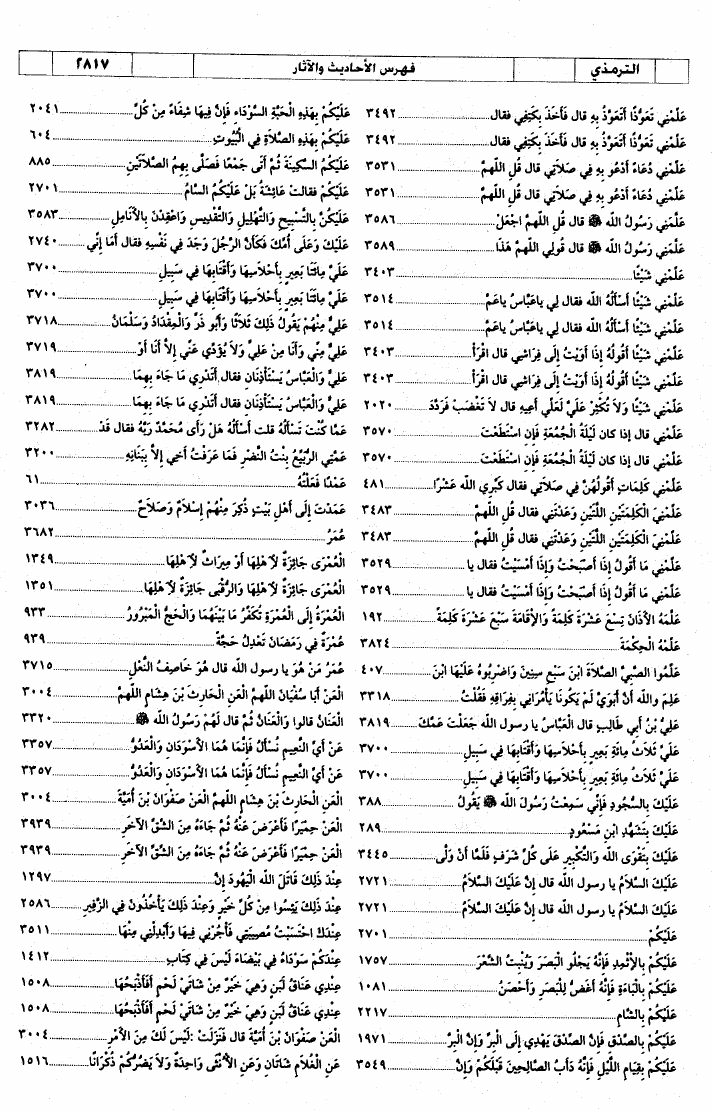 الترمذي
فهرس الأحاديث والآثار
٢٨١٧
عَلِّمْنِي تَعَوُّذًا أَتَعَوَّذُ بِهِ قال فَأَخَذَ بِكَتِفِي فقال ٣٤٩٢
عَلِّمْنِي تَعَوُّذًا أَتَعَوَّذُ بِهِ قال فَأَخَذَ بِكَتِفِي فقال ٣٤٩٢
عَلِّمْنِي دُعَاءً أَدْعُو بِهِ فِي صَلَاتِي قال قُلِ اللَّهمَّ ٣٥٣١
عَلِّمْنِي دُعَاءً أَدْعُو بِهِ فِي صَلَاتِي قال قُلِ اللَّهمَّ ٣٥٣١
عَلَّمَنِي رَسُولُ الله ﷺ قال قُلِ اللَّهمَّ اجْعَلْ ٣٥٨٦
عَلَّمَنِي رَسُولُ الله ﷺ قال قُولِي اللَّهمَّ هَذَا ٣٥٨٩
عَلِّمْنِي شَيْئًا ٣٤٠٣
عَلِّمْنِي شَيْئًا أَسْأَلُهُ الله فقال لِي يا عَبَّاسُ يا عَمَّ ٣٥١٤
عَلِّمْنِي شَيْئًا أَسْأَلُهُ الله فقال لِي يا عَبَّاسُ يا عَمَّ ٣٥١٤
عَلِّمْنِي شَيْئًا أَقُولُهُ إِذَا أَوَيْتُ إِلَى فِرَاشِي قال اقْرَأْ ٣٤٠٣
عَلِّمْنِي شَيْئًا أَقُولُهُ إِذَا أَوَيْتُ إِلَى فِرَاشِي قال اقْرَأْ ٣٤٠٣
عَلِّمْنِي شَيْئًا وَلَا تُكْثِرْ عَلَيَّ لَعَلِّي أَعِيهِ قال لَا تَغْضَبْ فَرَدَّدَ ٢٠٢٠
عَلِّمْنِي قال إذا كان لَيْلَةُ الْجُمُعَةِ فَإِنِ اسْتَطَعْتَ ٣٥٧٠
عَلِّمْنِي قال إذا كان لَيْلَةُ الْجُمُعَةِ فَإِنِ اسْتَطَعْتَ ٣٥٧٠
عَلِّمْنِي كَلِمَاتٍ أَقُولُهُنَّ فِي صَلَاتِي فقال كَبِّرِي الله عَشْرًا ٤٨١
عَلِّمْنِيَ الْكَلِمَتَيْنِ اللَّتَيْنِ وَعَدْتَنِي فقال قُلِ اللَّهمَّ ٣٤٨٣
عَلِّمْنِيَ الْكَلِمَتَيْنِ اللَّتَيْنِ وَعَدْتَنِي فقال قُلِ اللَّهمَّ ٣٤٨٣
عَلِّمْنِي مَا أَقُولُ إِذَا أَصْبَحْتُ وَإِذَا أَمْسَيْتُ فقال يا ٣٥٢٩
عَلِّمْنِي مَا أَقُولُ إِذَا أَصْبَحْتُ وَإِذَا أَمْسَيْتُ فقال يا ٣٥٢٩
عَلَّمَهُ الْأَذَانَ تِسْعَ عَشْرَةَ كَلِمَةً وَالْإِقَامَةَ سَبْعَ عَشْرَةَ كَلِمَةً ١٩٢
عَلِّمْهُ الْحِكْمَةَ ٣٨٢٤
عَلِّمُوا الصَّبِيَّ الصَّلَاةَ ابْنَ سَبْعِ سِنِينَ وَاضْرِبُوهُ عَلَيْهَا ابْنَ ٤٠٧
عَلِمَ والله أَنَّ أَبَوَيَّ لَمْ يَكُونَا يَأْمُرَانِي بِفِرَاقِهِ فَقُلْتُ ٣٣١٨
عَلِيُّ بْنُ أَبي طَالِبٍ قال الْعَبَّاسُ يا رسول الله جَعَلْتَ عَمَّكَ ٣٨١٩
عَلَيَّ ثَلَاثُ مِائَةِ بَعِيرٍ بِأَحْلَاسِهَا وَأَقْتَابِهَا فِي سَبِيلِ ٣٧٠٠
عَلَيَّ ثَلَاثُ مِائَةِ بَعِيرٍ بِأَحْلَاسِهَا وَأَقْتَابِهَا فِي سَبِيلِ ٣٧٠٠
عَلَيْكَ بِالسُّجُودِ فَإِنِّي سَمِعْتُ رَسُولَ الله ﷺ يَقُولُ ٣٨٨
عَلَيْكَ بِتَشَهُّدِ ابْنِ مَسْعُودٍ ٢٨٩
عَلَيْكَ بِتَقْوَى الله وَالتَّكْبِيرِ عَلَى كُلِّ شَرَفٍ فَلَمَّا أَنْ وَلَّى ٣٤٤٥
عَلَيْكَ السَّلَامُ يا رسول الله قال إِنَّ عَلَيْكَ السَّلَامُ ٢٧٢١
عَلَيْكَ السَّلَامُ يا رسول الله قال إِنَّ عَلَيْكَ السَّلَامُ ٢٧٢١
عَلَيْكُمْ ٢٧٠١
عَلَيْكُمْ بِالْإِثْمِدِ فَإِنَّهُ يَجْلُو الْبَصَرَ وَيُنْبِتُ الشَّعْرَ ١٧٥٧
عَلَيْكُمْ بِالْبَاءَةِ فَإِنَّهُ أَغَضُّ لِلْبَصَرِ وَأَحْصَنُ ١٠٨١
عَلَيْكُمْ بِالشَّامِ ٢٢١٧
عَلَيْكُمْ بِالصِّدْقِ فَإِنَّ الصِّدْقَ يَهْدِي إِلَى الْبِرِّ وَإِنَّ الْبِرَّ ١٩٧١
عَلَيْكُمْ بِقِيَامِ اللَّيْلِ فَإِنَّهُ دَأَبُ الصَّالِحِينَ قَبْلَكُمْ وَإِنَّ ٣٥٤٩
عَلَيْكُمْ بِهَذِهِ الْحَبَّةِ السَّوْدَاءِ فَإِنَّ فِيهَا شِفَاءً مِنْ كُلِّ ٢٠٤١
عَلَيْكُمْ بِهَذِهِ الصَّلَاةِ فِي الْبُيُوتِ ٦٠٤
عَلَيْكُمُ السَّكِينَةَ ثُمَّ أَتَى جَمْعًا فَصَلَّى بِهِمُ الصَّلَاتَيْنِ ٨٨٥
عَلَيْكُمْ فقالت عَائِشَةُ بَلْ عَلَيْكُمُ السَّامُ ٢٧٠١
عَلَيْكُنَّ بِالتَّسْبِيحِ وَالتَّهْلِيلِ وَالتَّقْدِيسِ وَاعْقِدْنَ بِالْأَنَامِلِ ٣٥٨٣
عَلَيْكَ وَعَلَى أُمِّكَ فَكَأَنَّ الرَّجُلَ وَجَدَ فِي نَفْسِهِ فقال أَمَا إِنِّي ٢٧٤٠
عَلَيَّ مِائَتَا بَعِيرٍ بِأَحْلَاسِهَا وَأَقْتَابِهَا فِي سَبِيلِ ٣٧٠٠
عَلَيَّ مِائَتَا بَعِيرٍ بِأَحْلَاسِهَا وَأَقْتَابِهَا فِي سَبِيلِ ٣٧٠٠
عَلِيٌّ مِنْهُمْ يَقُولُ ذَلِكَ ثَلَاثًا وَأَبُو ذَرٍّ وَالْمِقْدَادُ وَسَلْمَانُ ٣٧١٨
عَلِيٌّ مِنِّي وَأَنَا مِنْ عَلِيٍّ وَلَا يُؤَدِّي عَنِّي إِلَّا أَنَا أَوْ ٣٧١٩
عَلِيٌّ وَالْعَبَّاسُ يَسْتَأْذِنَانِ فقال أَتَدْرِي مَا جَاءَ بِهِمَا ٣٨١٩
عَلِيٌّ وَالْعَبَّاسُ يَسْتَأْذِنَانِ فقال أَتَدْرِي مَا جَاءَ بِهِمَا ٣٨١٩
عَمَّا كُنْتَ تَسْأَلُهُ قلت أَسْأَلُهُ هَلْ رَأَى مُحَمَّدٌ رَبَّهُ فقال قَدْ ٣٢٨٢
عَمَّتِي الرُّبَيِّعُ بِنْتُ النَّضْرِ فَمَا عَرَفْتُ أَخِي إِلَّا بِبَنَانِهِ ٣٢٠٠
عَمْدًا فَعَلْتُهُ ٦١
عَمَدْتَ إِلَى أَهْلِ بَيْتٍ ذُكِرَ مِنْهُمْ إِسْلَامٌ وَصَلَاحٌ ٣٠٣٦
عُمَرُ ٣٦٨٢
الْعُمْرَى جَائِزَةٌ لِأَهْلِهَا أَوْ مِيرَاثٌ لِأَهْلِهَا ١٣٤٩
الْعُمْرَى جَائِزَةٌ لِأَهْلِهَا وَالرُّقْبَى جَائِزَةٌ لِأَهْلِهَا ١٣٥١
الْعُمْرَةُ إِلَى الْعُمْرَةِ تُكَفِّرُ مَا بَيْنَهُمَا وَالْحَجُّ الْمَبْرُورُ ٩٣٣
عُمْرَةٌ فِي رَمَضَانَ تَعْدِلُ حَجَّةً ٩٣٩
عُمَرُ مَنْ هُوَ يا رسول الله قال هُوَ خَاصِفُ النَّعْلِ ٣٧١٥
الْعَنْ أَبَا سُفْيَانَ اللَّهمَّ الْعَنِ الْحَارِثَ بْنَ هِشَامٍ اللَّهمَّ ٣٠٠٤
الْعَنَانُ قالوا وَالْعَنَانُ ثُمَّ قال لَهُمْ رَسُولُ الله ﷺ ٣٣٢٠
عَنْ أَيِّ النَّعِيمِ نُسْأَلُ فَإِنَّمَا هُمَا الْأَسْوَدَانِ وَالْعَدُوُّ ٣٣٥٧
عَنْ أَيِّ النَّعِيمِ نُسْأَلُ فَإِنَّمَا هُمَا الْأَسْوَدَانِ وَالْعَدُوُّ ٣٣٥٧
الْعَنِ الْحَارِثَ بْنَ هِشَامٍ اللَّهمَّ الْعَنْ صَفْوَانَ بْنَ أُمَيَّةَ ٣٠٠٤
الْعَنْ حِمْيَرًا فَأَعْرَضَ عَنْهُ ثُمَّ جَاءَهُ مِنَ الشِّقِّ الْآخَرِ ٣٩٣٩
الْعَنْ حِمْيَرًا فَأَعْرَضَ عَنْهُ ثُمَّ جَاءَهُ مِنَ الشِّقِّ الْآخَرِ ٣٩٣٩
عِنْدَ ذَلِكَ قَاتَلَ الله الْيَهُودَ إِنَّ ١٢٩٧
عِنْدَ ذَلِكَ يَئِسُوا مِنْ كُلِّ خَيْرٍ وَعِنْدَ ذَلِكَ يَأْخُذُونَ فِي الزَّفِيرِ ٢٥٨٦
عِنْدَكَ احْتَسَبْتُ مُصِيبَتِي فَأْجُرْنِي فِيهَا وَأَبْدِلْنِي مِنْهَا ٣٥١١
عِنْدَكُمْ سَوْدَاءُ فِي بَيْضَاءَ لَيْسَ فِي كِتَابِ ١٤١٢
عِنْدِي عَنَاقُ لَبَنٍ وَهِيَ خَيْرٌ مِنْ شَاتَيْ لَحْمٍ أَفَأَذْبَحُهَا ١٥٠٨
عِنْدِي عَنَاقُ لَبَنٍ وَهِيَ خَيْرٌ مِنْ شَاتَيْ لَحْمٍ أَفَأَذْبَحُهَا ١٥٠٨
الْعَنْ صَفْوَانَ بْنَ أُمَيَّةَ قال فَنَزَلَتْ :لَيْسَ لَكَ مِنَ الْأَمْرِ ٣٠٠٤
عَنِ الْغُلَامِ شَاتَانِ وَعَنِ الْأُنْثَى وَاحِدَةٌ وَلَا يَضُرُّكُمْ ذُكْرَانًا ١٥١٦